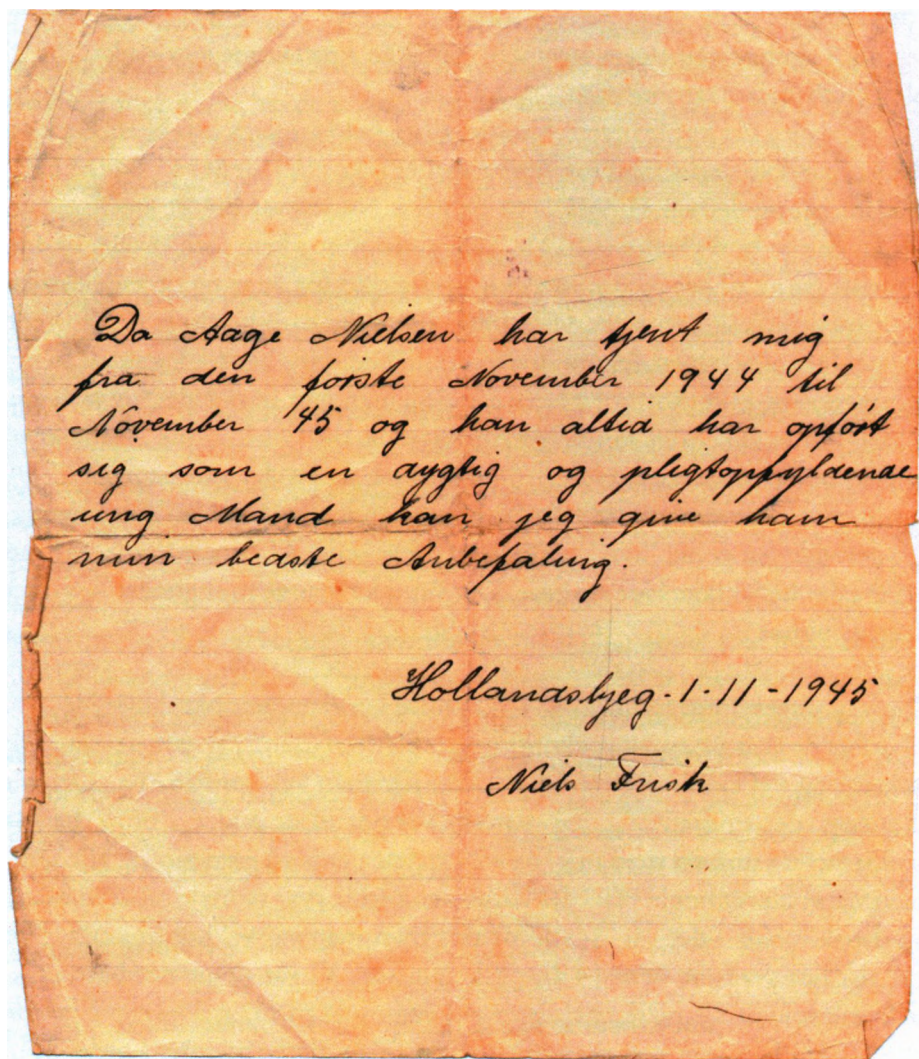 Da Aage Nielsen har tjent mig
fra den første November 1944 til
November '45 og han altid har opført
sig som en dygtig og pligtopfyldende
ung Mand kan jeg give ham
min bedste Anbefaling.
Hollandsbjeg - 1 - 11 - 1945
Niels Frisk